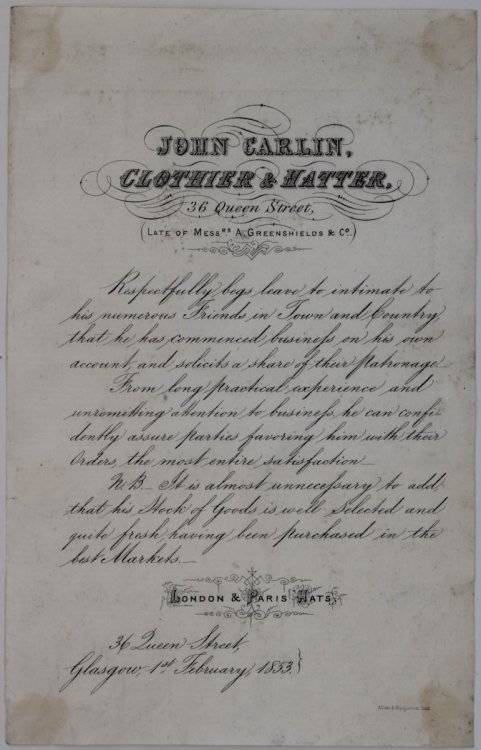 JOHN CARLIN,
CLOTHIER & HATTER,
36 Queen Street,
(LATE OF MESSRS A. GREENSHIELDS & Co.)
Respectfully begs leave to intimate to
his numerous Friends, in Town and Country
that he has commenced business on his own
account, and solicits a share of their patronage
From long practical experience and
unremitting attention to business, he can confi-
dently assure parties favoring him with their
Orders, the most entire satisfaction_
N.B._ It is almost unnecessary to add,
that his Stock of Goods, is well Selected and
quite fresh, having been purchased in the
best Markets._
LONDON & PARIS HATS,
36 Queen Street,
Glasgow, 1st February, 1853.}